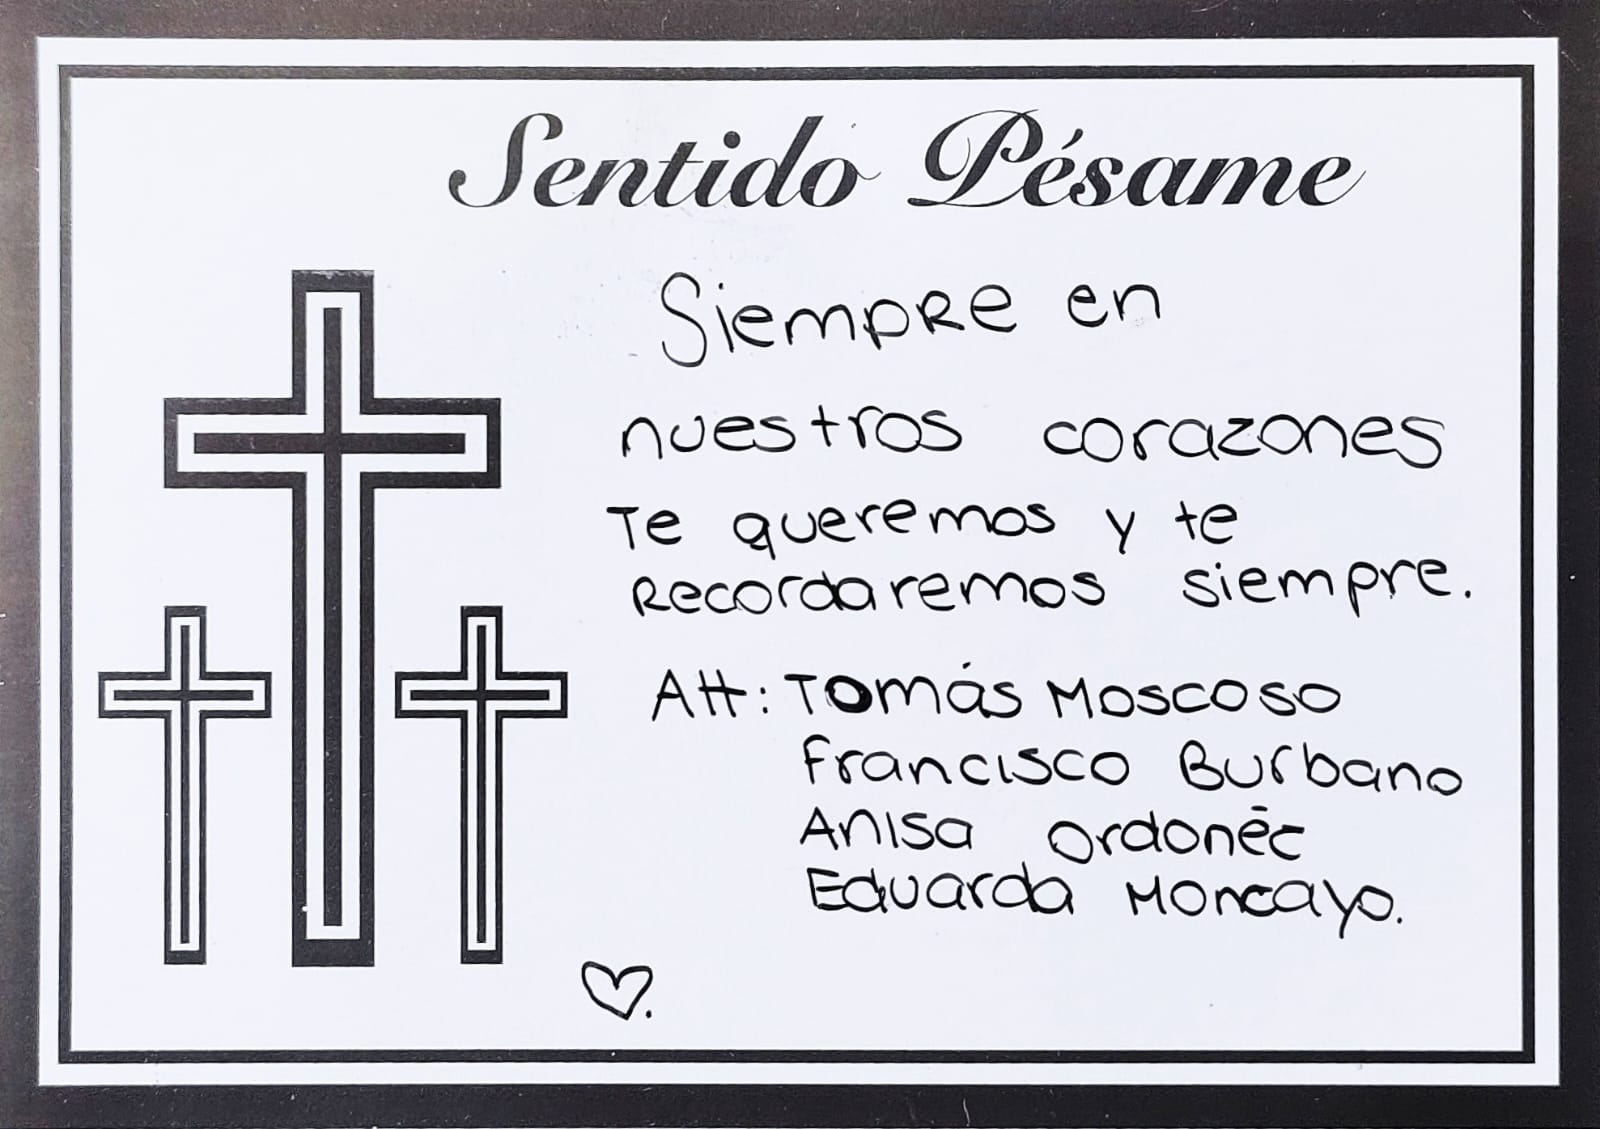 Sentido Pésame
Siempre en
nuestros corazones
Te queremos y te
Recordaremos siempre.
Att: Tomás Moscoso
Francisco Burbano
Anisa Ordonéc
Eduarda Moncayo.